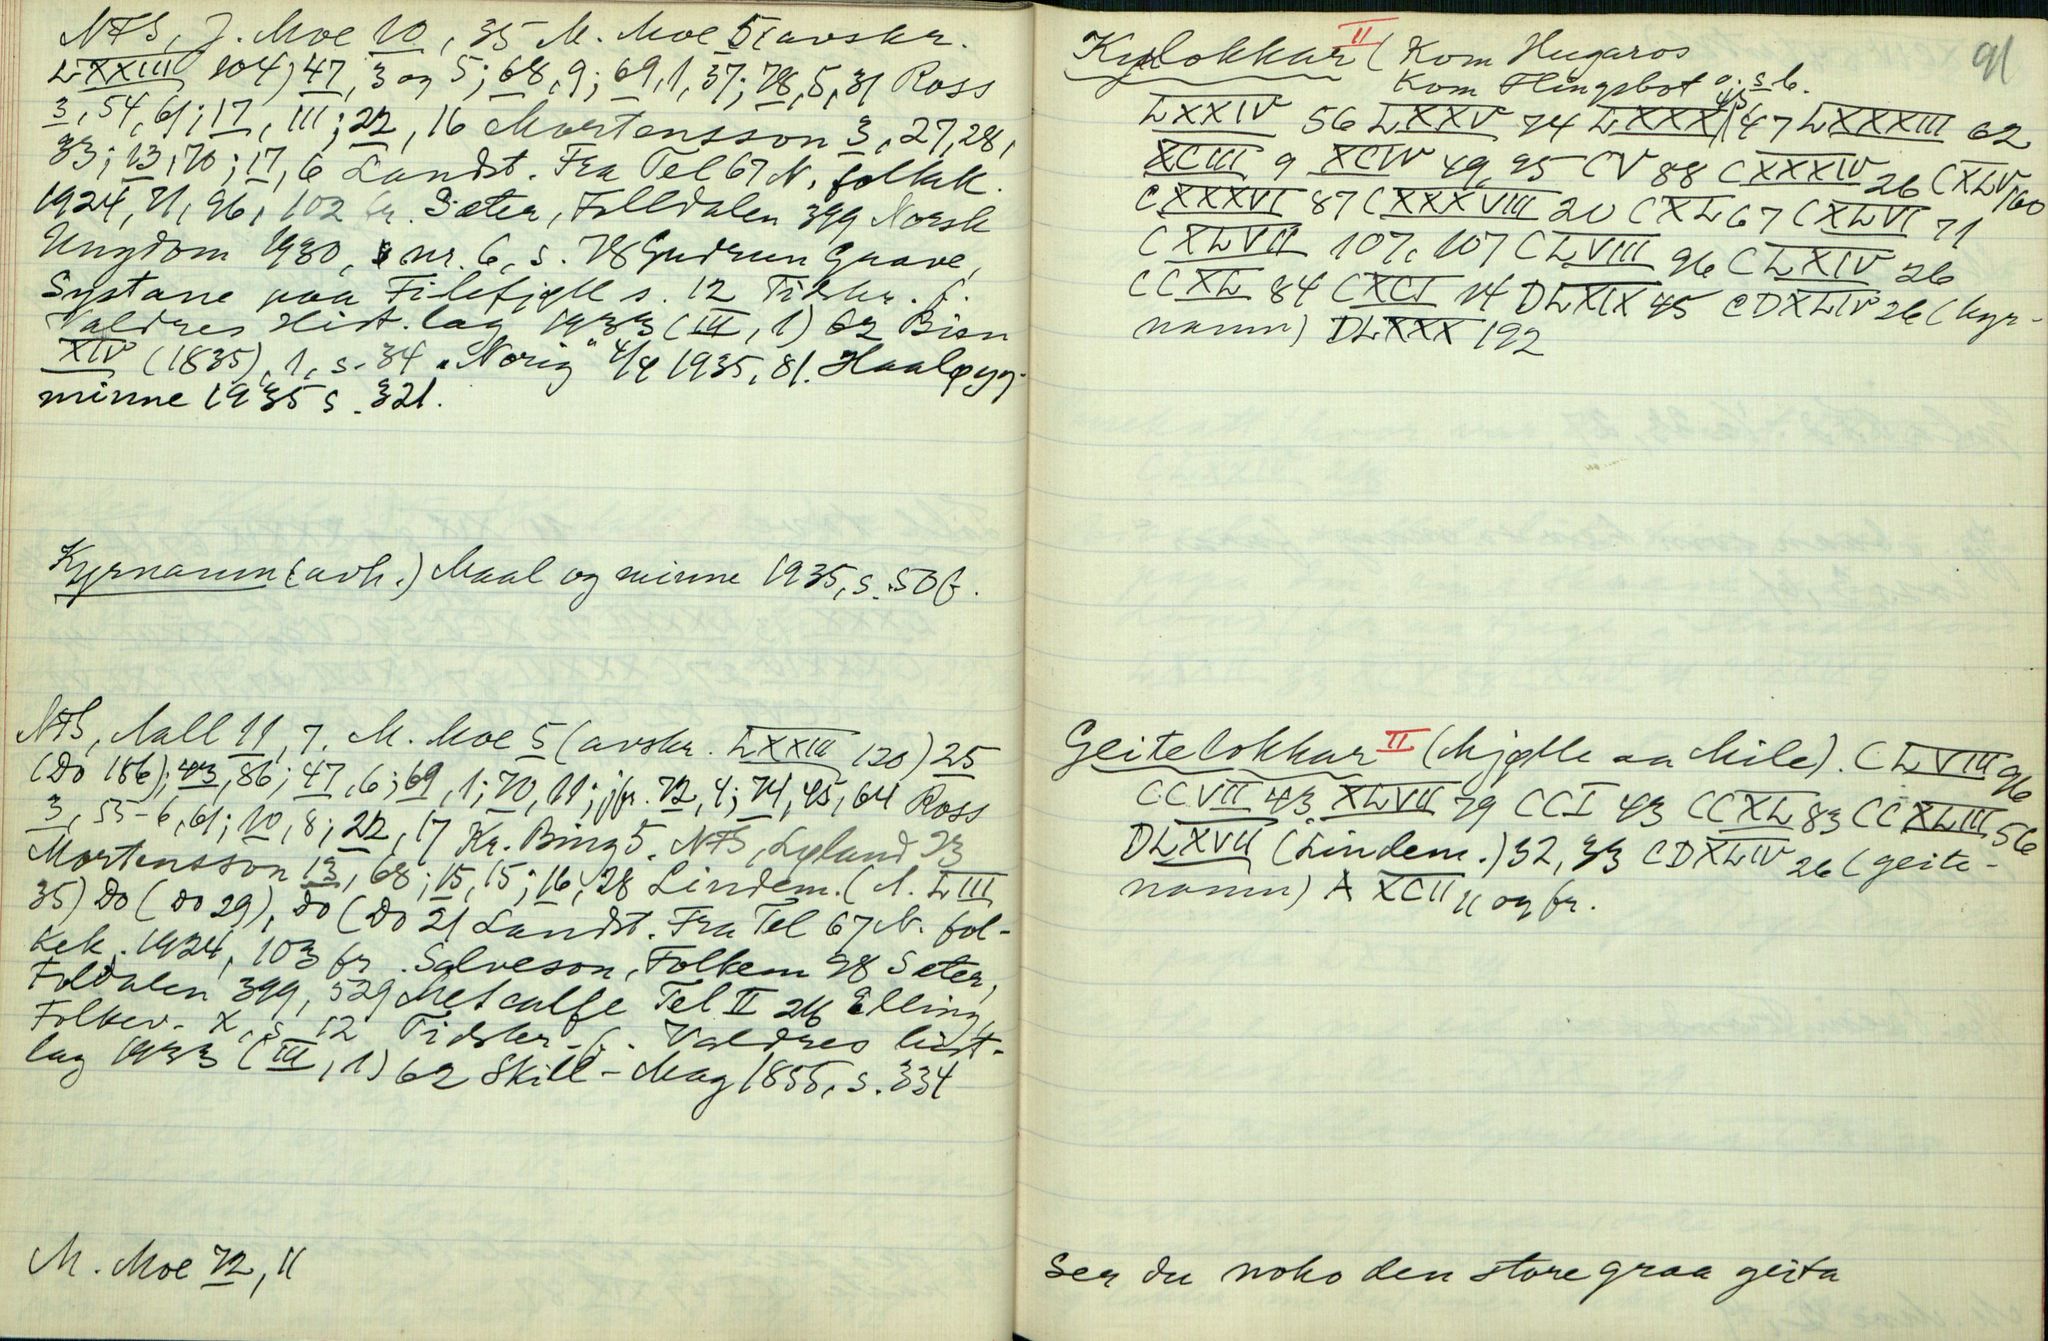 NFS, J. Moe 10, 35 M. Moe 5 (avskr.
LXXIII 104) 47, 3 og 5; 68, 9; 69, 1, 37; 78, 5, 31 Ross
3, 54, 61; 17, 111; 22, 16 Mortensson 3, 27, 28,
33; 13, 70; 17, 6 Landst. Fra Tel 67 N. folkek.
1924, 71, 96, 102 fr. Sæter, Folldalen 399 Norsk
Ungdom 1930, nr. 6, s. 78 Gudrun Grave,
Systane paa Filefjell s. 12 Tidskr. f.
Valdres Hist. lag 1933 (III, 1) 62 Bien
XIV (1835), 1, s. 34 "Norig" 4/4 1935, 81. Haaløyg-
minne 1935 s. 321.
Kyrnamn (avh.) Maal og minne 1935, s. 50 f.
NFS, Aall 11, 7. M. Moe 5 (avskr. LXXIII 120) 25
(Do 156); 43, 86; 47, 6; 69, 1; 70, 11; jfr. 72, 4; 74, 45, 64 Ross
3, 55-6, 61; 10, 8; 22, 17 Kr. Bing 5. NFS, Lyland 23
Mortensson 13, 68; 15, 15; 16, 28 Lindem. (A. LIII
35) Do (Do 29), Do (Do 21 Landst. Fra Tel 67 N. fol-
kek. 1924, 103 fr. Salveson, Folkem 98 Sæter,
Foldalen 399, 529 Metcalfe Tel II 26 Elling,
Folkev. X, s. 12 Tidskr. f. Valdres hist.
lag 1933 (III, 1) 62 Skill-Mag 1855, s. 334
M. Moe 72, 11
91
Kyrlokkar II (Kom Hugaros
Kom Flingsbot o. s. b.
LXXIV 56 LXXV 74 LXXX 47 LXXXIII 62
XCIII 9 XCIV 49, 95 CV 88 CXXXIV 26 CXLV 160
CXXXVI 87 CXXXVIII 20 CXL 67 CXLVI 71
CXLVII 107, 107 CLVIII 96 CLXIV 26
CCXL 84 CXCI 14 DLXIX 45 CDXLIV 26 (kyr-
namn) DLXXX 192
Geitelokkar II (Mjølle aa Mile). CLVIII 96
CCVII 43 XLVII 79 CCI 43 CCXL 83 CCXLIII 56
DLXVII (Lindem.) 32, 33 CDXLIV 26 (geite-
namn) A XCII 11 og fr.
Ser du noko den store graa geita